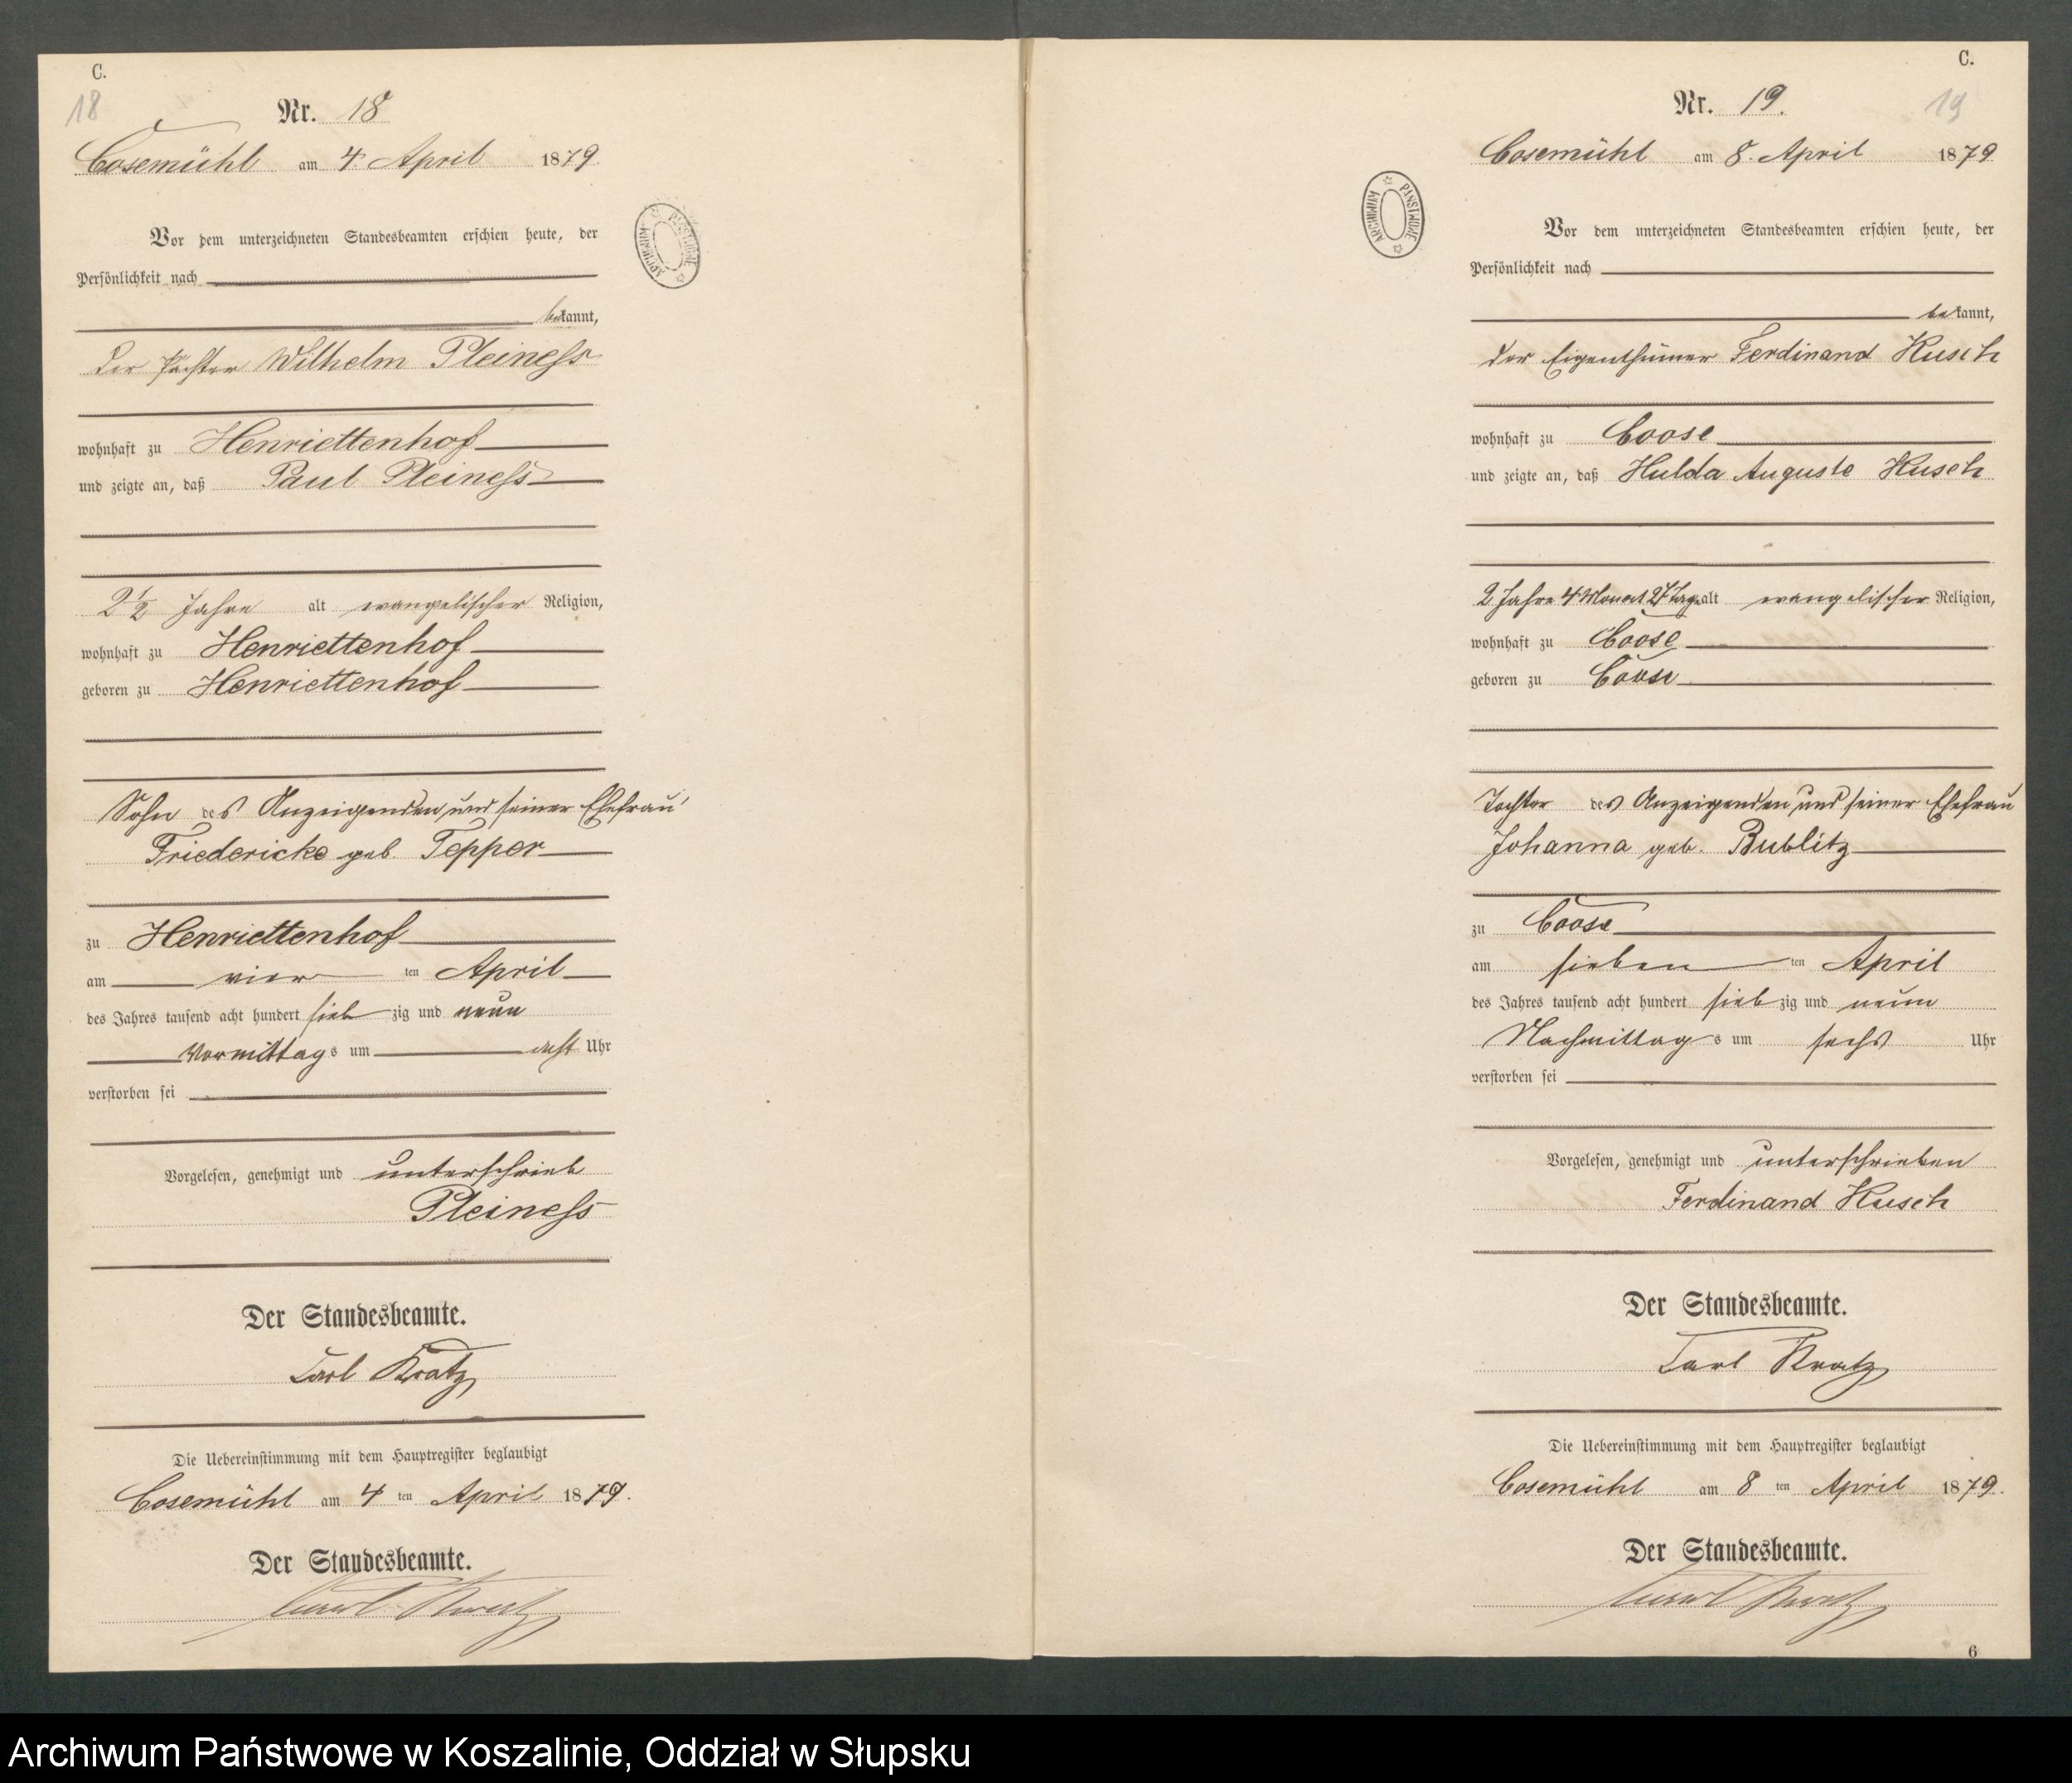 C.
18
Nr. 18
Cosemühl am 4. April 1879.
ARCHIWUM PAŃSTWOWE
Vor dem unterzeichneten Standesbeamten erschien heute, der
Persönlichkeit nach
bekannt,
der Pächter Wilhelm Pleineß
wohnhaft zu Henriettenhof
und zeigte an, daß Paul Pleineß
2 1/2 Jahre alt evangelischer Religion,
wohnhaft zu Henriettenhof
geboren zu Henriettenhof
Sohn des Anzeigenden und seiner Ehefrau
Friedericke geb. Tepper
zu Henriettenhof
am vier ten April
des Jahres tausend acht hundert sieb zig und neun
Vormittags um acht Uhr
verstorben sei
Vorgelesen, genehmigt und unterschrieb
Pleineß
Der Standesbeamte.
Carl Kratz
Die Uebereinstimmung mit dem Hauptregister beglaubigt
Cosemühl am 4 ten April 1879.
Der Standesbeamte.
Carl Kratz
C.
19
Nr. 19.
Cosemühl am 8. April 1879
ARCHIWUM PAŃSTWOWE
Vor dem unterzeichneten Standesbeamten erschien heute, der
Persönlichkeit nach
bekannt,
der Eigenthümer Ferdinand Kusch
wohnhaft zu Coose
und zeigte an, daß Hulda Auguste Kusch
2 Jahre 4 Monat 27 Tage alt evangelischer Religion,
wohnhaft zu Coose
geboren zu Coose
Tochter des Anzeigenden und seiner Ehefrau
Johanna geb. Bublitz
zu Coose
am sieben ten April
des Jahres tausend acht hundert sieb zig und neun
Nachmittags um sechs Uhr
verstorben sei
Vorgelesen, genehmigt und unterschrieben
Ferdinand Kusch
Der Standesbeamte.
Carl Kratz
Die Uebereinstimmung mit dem Hauptregister beglaubigt
Cosemühl am 8 ten April 1879.
Der Standesbeamte.
Carl Kratz
6
Archiwum Państwowe w Koszalinie, Oddział w Słupsku